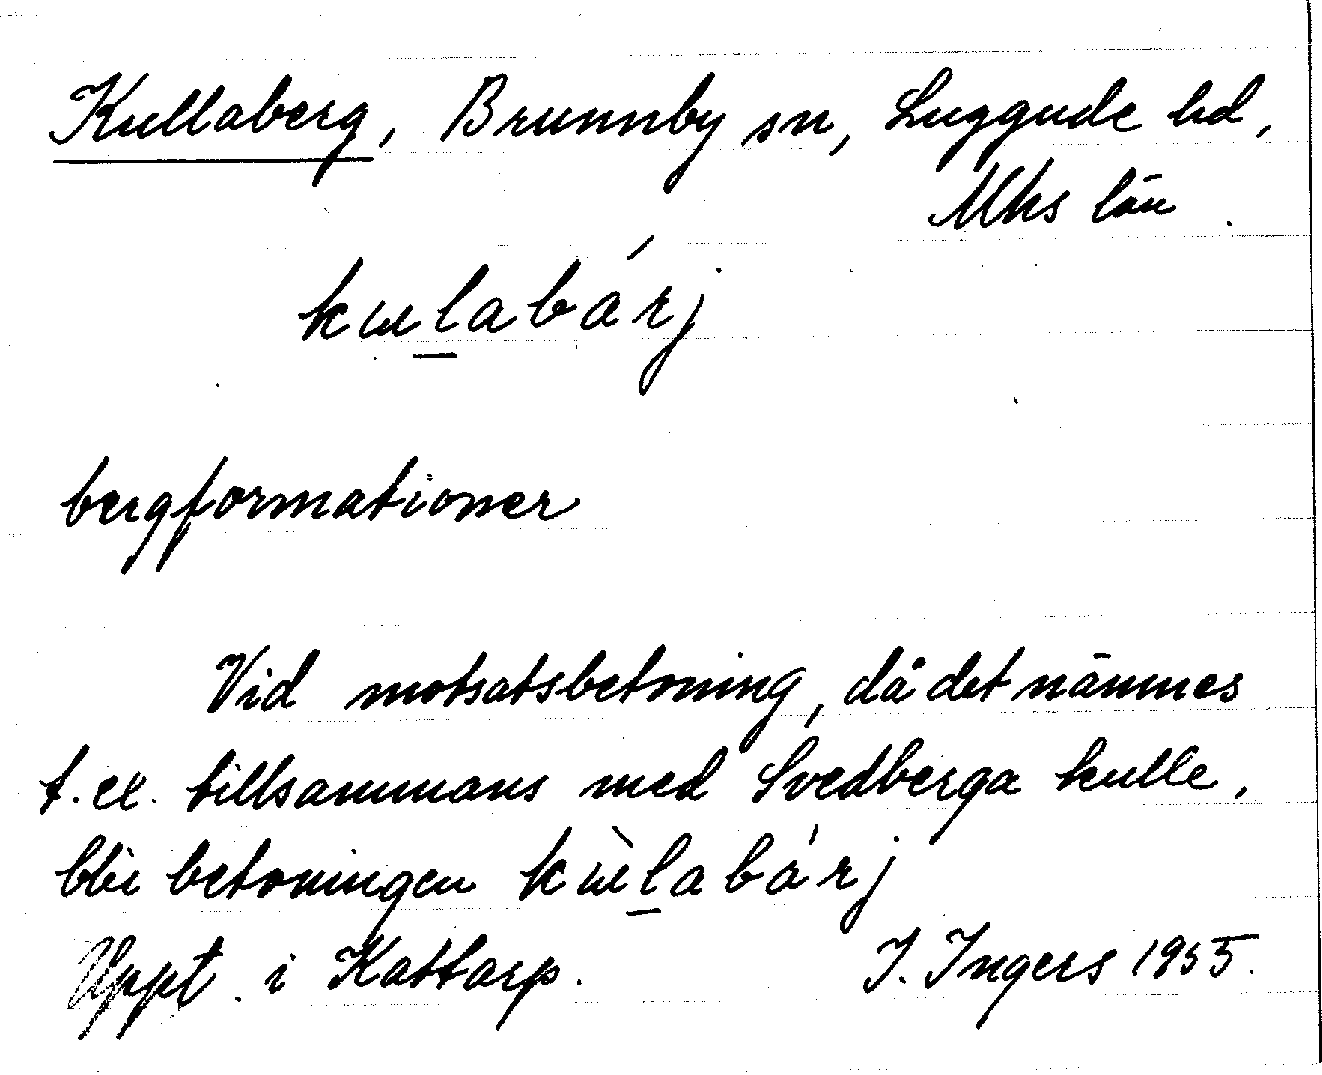 Kullaberg, Brunnby sn, Luggude hd,
Mhs län
kɯl̲abárj
bergformationer
Vid motsatsbetoning, då det nämnes
t.ex. tillsammans med Svedberga kulle,
blir betoningen kɯ̀l̲abárj
Uppt. i Kattarp. I. Ingers 1955.